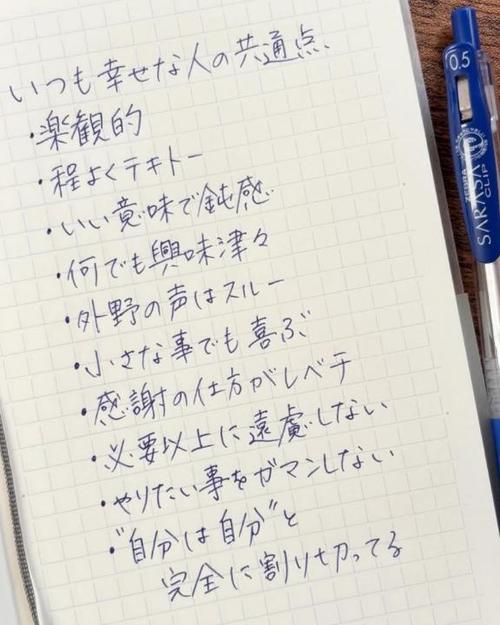 いつも幸せな人の共通点
・楽観的
・程よくテキトー
・いい意味で鈍感
・何でも興味津々
・外野の声はスルー
・小さな事でも喜ぶ
・感謝の仕方がレベチ
・必要以上に遠慮しない
・やりたい事をガマンしない
・"自分は自分"と
完全に割り切ってる
0.5
ZEBRA
SARASA
CLIP